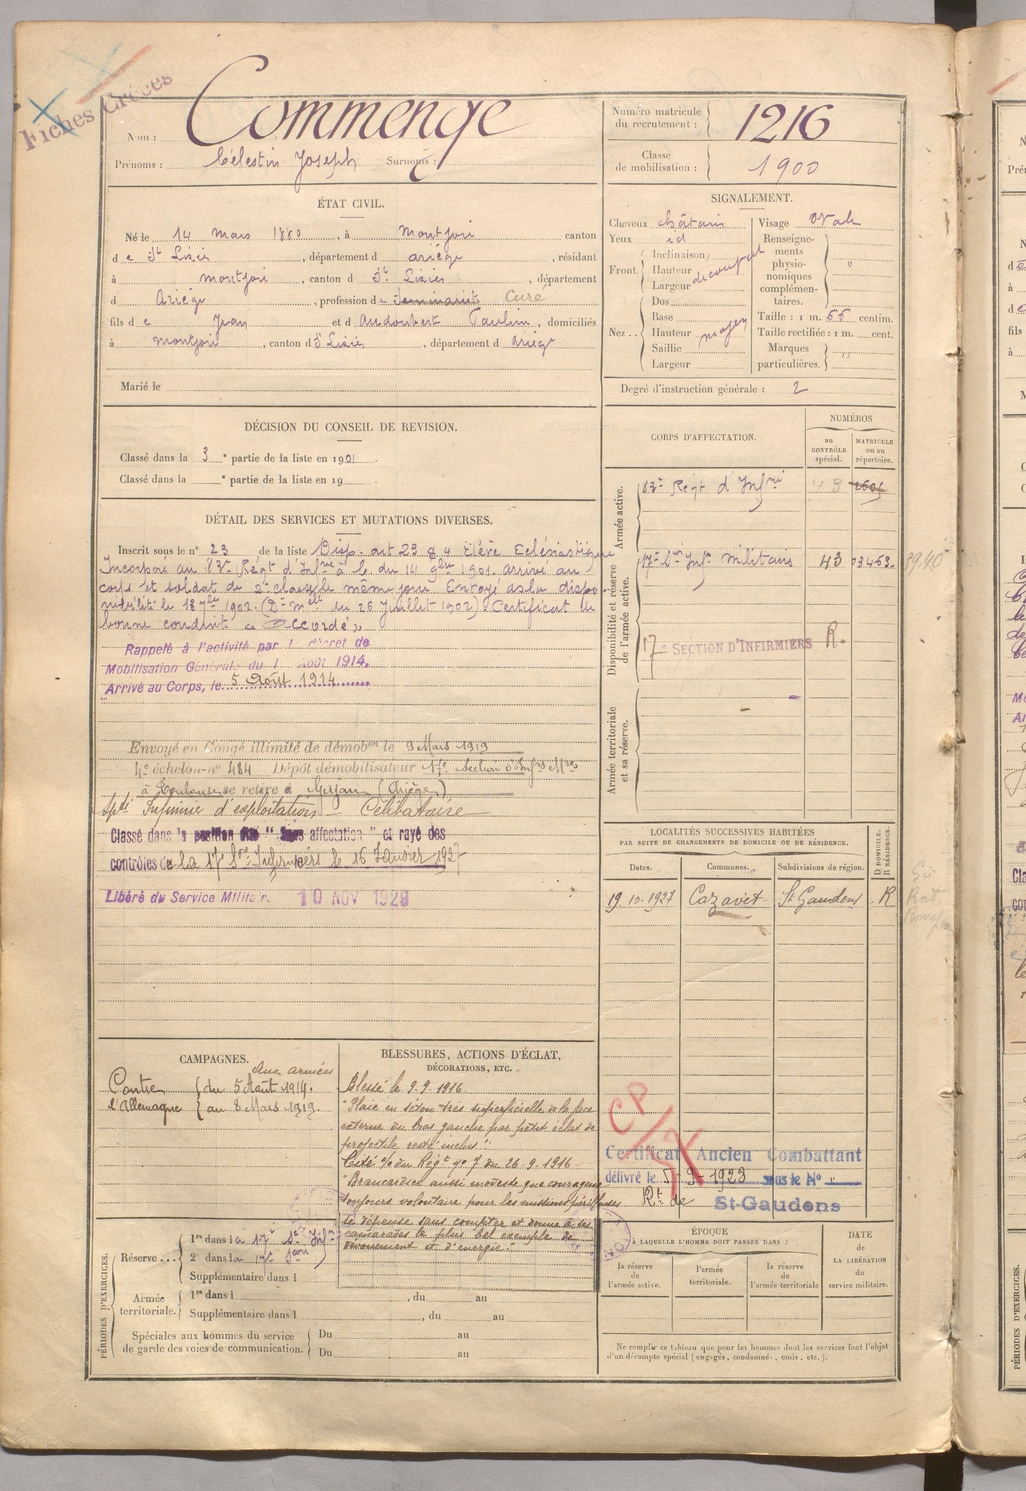 Fiches Créées
Nom : Commenge
Prénoms : Célestin Joseph Surnoms :
Numéro matricule du recrutement : 1216
Classe de mobilisation : 1900
ÉTAT CIVIL.
Né le 14 mars 1880, à Montjoie canton
de St Lizier, département d ariège, résidant
à montjoie, canton d St Lizier, département
d Ariège, profession de Seminariste Curé
fils de Jean et d Audoubert Pauline, domiciliés
à montjoie, canton d St Lizier, département d Ariège
Marié le
SIGNALEMENT.
Cheveux châtain
Yeux id
Front Inclinaison
Hauteur découvert
Largeur
Nez Dos
Base
Hauteur moyen
Saillie
Largeur
Visage ovale
Renseignements physionomiques complémentaires. "
Taille : 1 m. 55 centim.
Taille rectifiée : 1 m. cent.
Marques particulières. "
Degré d'instruction générale : 2
DÉCISION DU CONSEIL DE REVISION.
Classé dans la 3e partie de la liste en 1901
Classé dans la e partie de la liste en 19
DÉTAIL DES SERVICES ET MUTATIONS DIVERSES.
Inscrit sous le n° 23 de la liste Disp. art 23 § 4 Elève Eclésiastique
Incorporé au 83e Régt d'Infrie à c. du 14 9bre 1901. arrivé au
corps et soldat de 2e classe le même jour. Envoyé en la dispo
nibilité le 18 7bre 1902. (Don melle du 26 Juillet 1902) Certificat de
bonne conduite "accordé"
Rappelé à l'activité par décret de
Mobilisation Générale du 1 août 1914.
Arrivé au Corps, le 5 Août 1914
Envoyé en Congé illimité de démobon le 9 Mars 1919
4e échelon n° 484 Dépôt démobilisateur 17e Section d'Infrs Mres
à Toulouse se retire à (Ariège)
Aptde Infirmier d'exploitation - Célibataire
Classé dans la position dite "Sans affectation" et rayé des
contrôles de la 17e Son Infirmiers le 16 Janvier 1927
Libéré du Service Militaire 10 NOV 1929
CORPS D'AFFECTATION.
NUMÉROS
au CONTRÔLE spécial.
MATRICULE ou au répertoire.
Armée active.
83e Régt d'Infrie 43
Disponibilité et réserve de l'armée active.
17e Son Infrs militaires 43 03463
17e SECTION D'INFIRMIERS R.
Armée territoriale et sa réserve.
LOCALITÉS SUCCESSIVES HABITÉES
PAR SUITE DE CHANGEMENTS DE DOMICILE OU DE RÉSIDENCE.
Dates. Communes. Subdivisions de région. D. DOMICILE. R. RÉSIDENCE.
19.10.1927 Cazavet St Gaudens R
CAMPAGNES.
Contre l'Allemagne
Aux armées
du 5 Août 1914.
au 8 Mars 1919.
BLESSURES, ACTIONS D'ÉCLAT,
DÉCORATIONS, ETC.
Blessé le 9.9.1916
"Plaie en séton très superficielle de la face
externe du bras gauche par petit éclat de
projectile resté inclus".
Cité o/o du Régt n° 7 du 26.9.1916
"Brancardier aussi modeste que courageux
toujours volontaire pour les missions périlleuses
se dépense sans compter et donne à ses
camarades le plus bel exemple de
dévouement et d'énergie."
CP
Certificat Ancien Combattant
délivré le 5-9-1928 sous le N°
Rt de St-Gaudens
PÉRIODES D'EXERCICES.
Réserve
1re dans la 17e Son Infrs
2e dans la 17e Son
Supplémentaire dans l
Armée territoriale.
1re dans l , du au
Supplémentaire dans l , du au
Spéciales aux hommes du service de garde des voies de communication.
Du au
Du au
ÉPOQUE
À LAQUELLE L'HOMME DOIT PASSER DANS :
la réserve de l'armée active.
l'armée territoriale.
la réserve de l'armée territoriale
DATE DE LA LIBÉRATION du service militaire.
Ne remplir ce tableau que pour les hommes dont les services font l'objet
d'un décompte spécial (engagés, condamnés, omis, etc.).